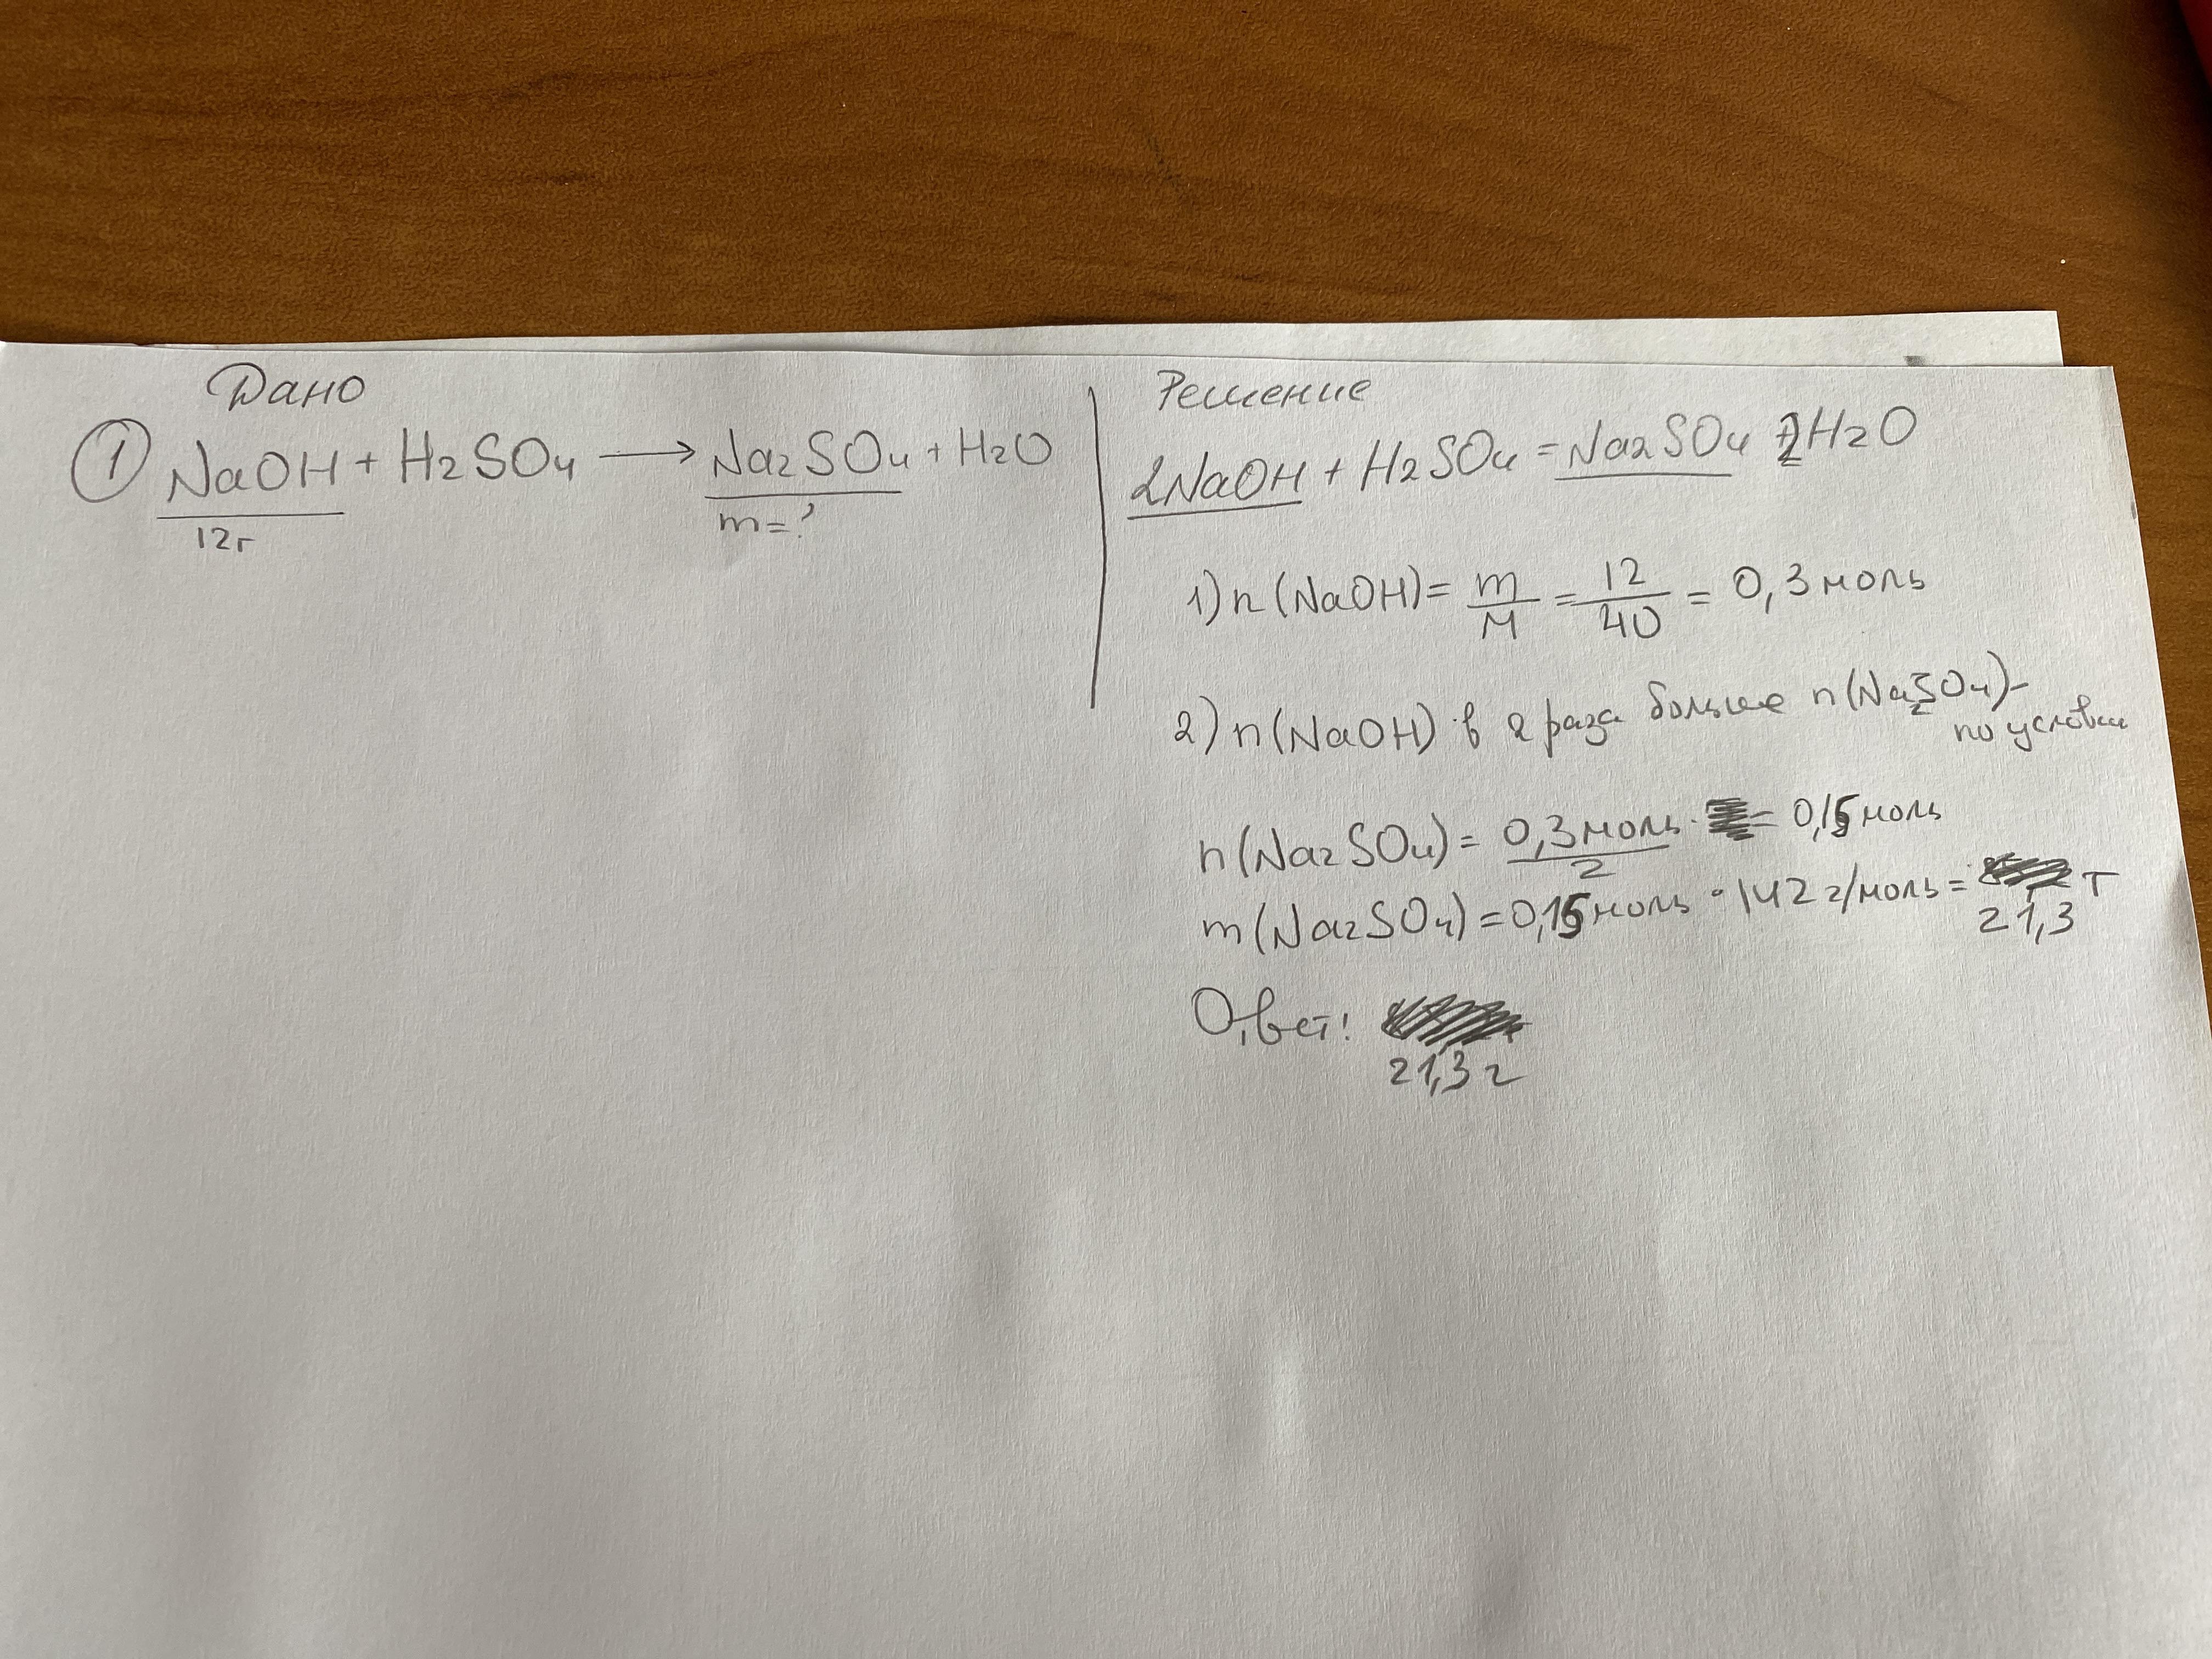 Дано
① NaOH + H2SO4 → Na2SO4 + H2O
12г
m=?
Решение
2NaOH + H2SO4 = Na2SO4 + 2H2O
1) n(NaOH) = m/M = 12/40 = 0,3 моль
2) n(NaOH) в 2 раза больше n(Na2SO4) -
по условии
n(Na2SO4) = 0,3 моль/2 = 0,15 моль
m(Na2SO4) = 0,15 моль · 142 г/моль = г
21,3
Ответ:
21,3 г